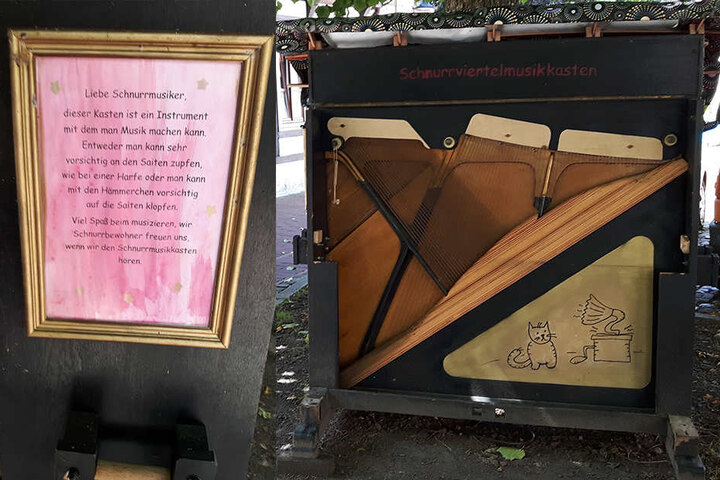 Liebe Schnurrmusiker,
dieser Kasten ist ein Instrument
mit dem man Musik machen kann.
Entweder man kann sehr
vorsichtig an den Saiten zupfen,
wie bei einer Harfe oder man kann
mit den Hämmerchen vorsichtig
auf die Saiten klopfen.
Viel Spaß beim musizieren, wir
Schnurrbewohner freuen uns,
wenn wir den Schnurrmusikkasten
hören.
Schnurrviertelmusikkasten